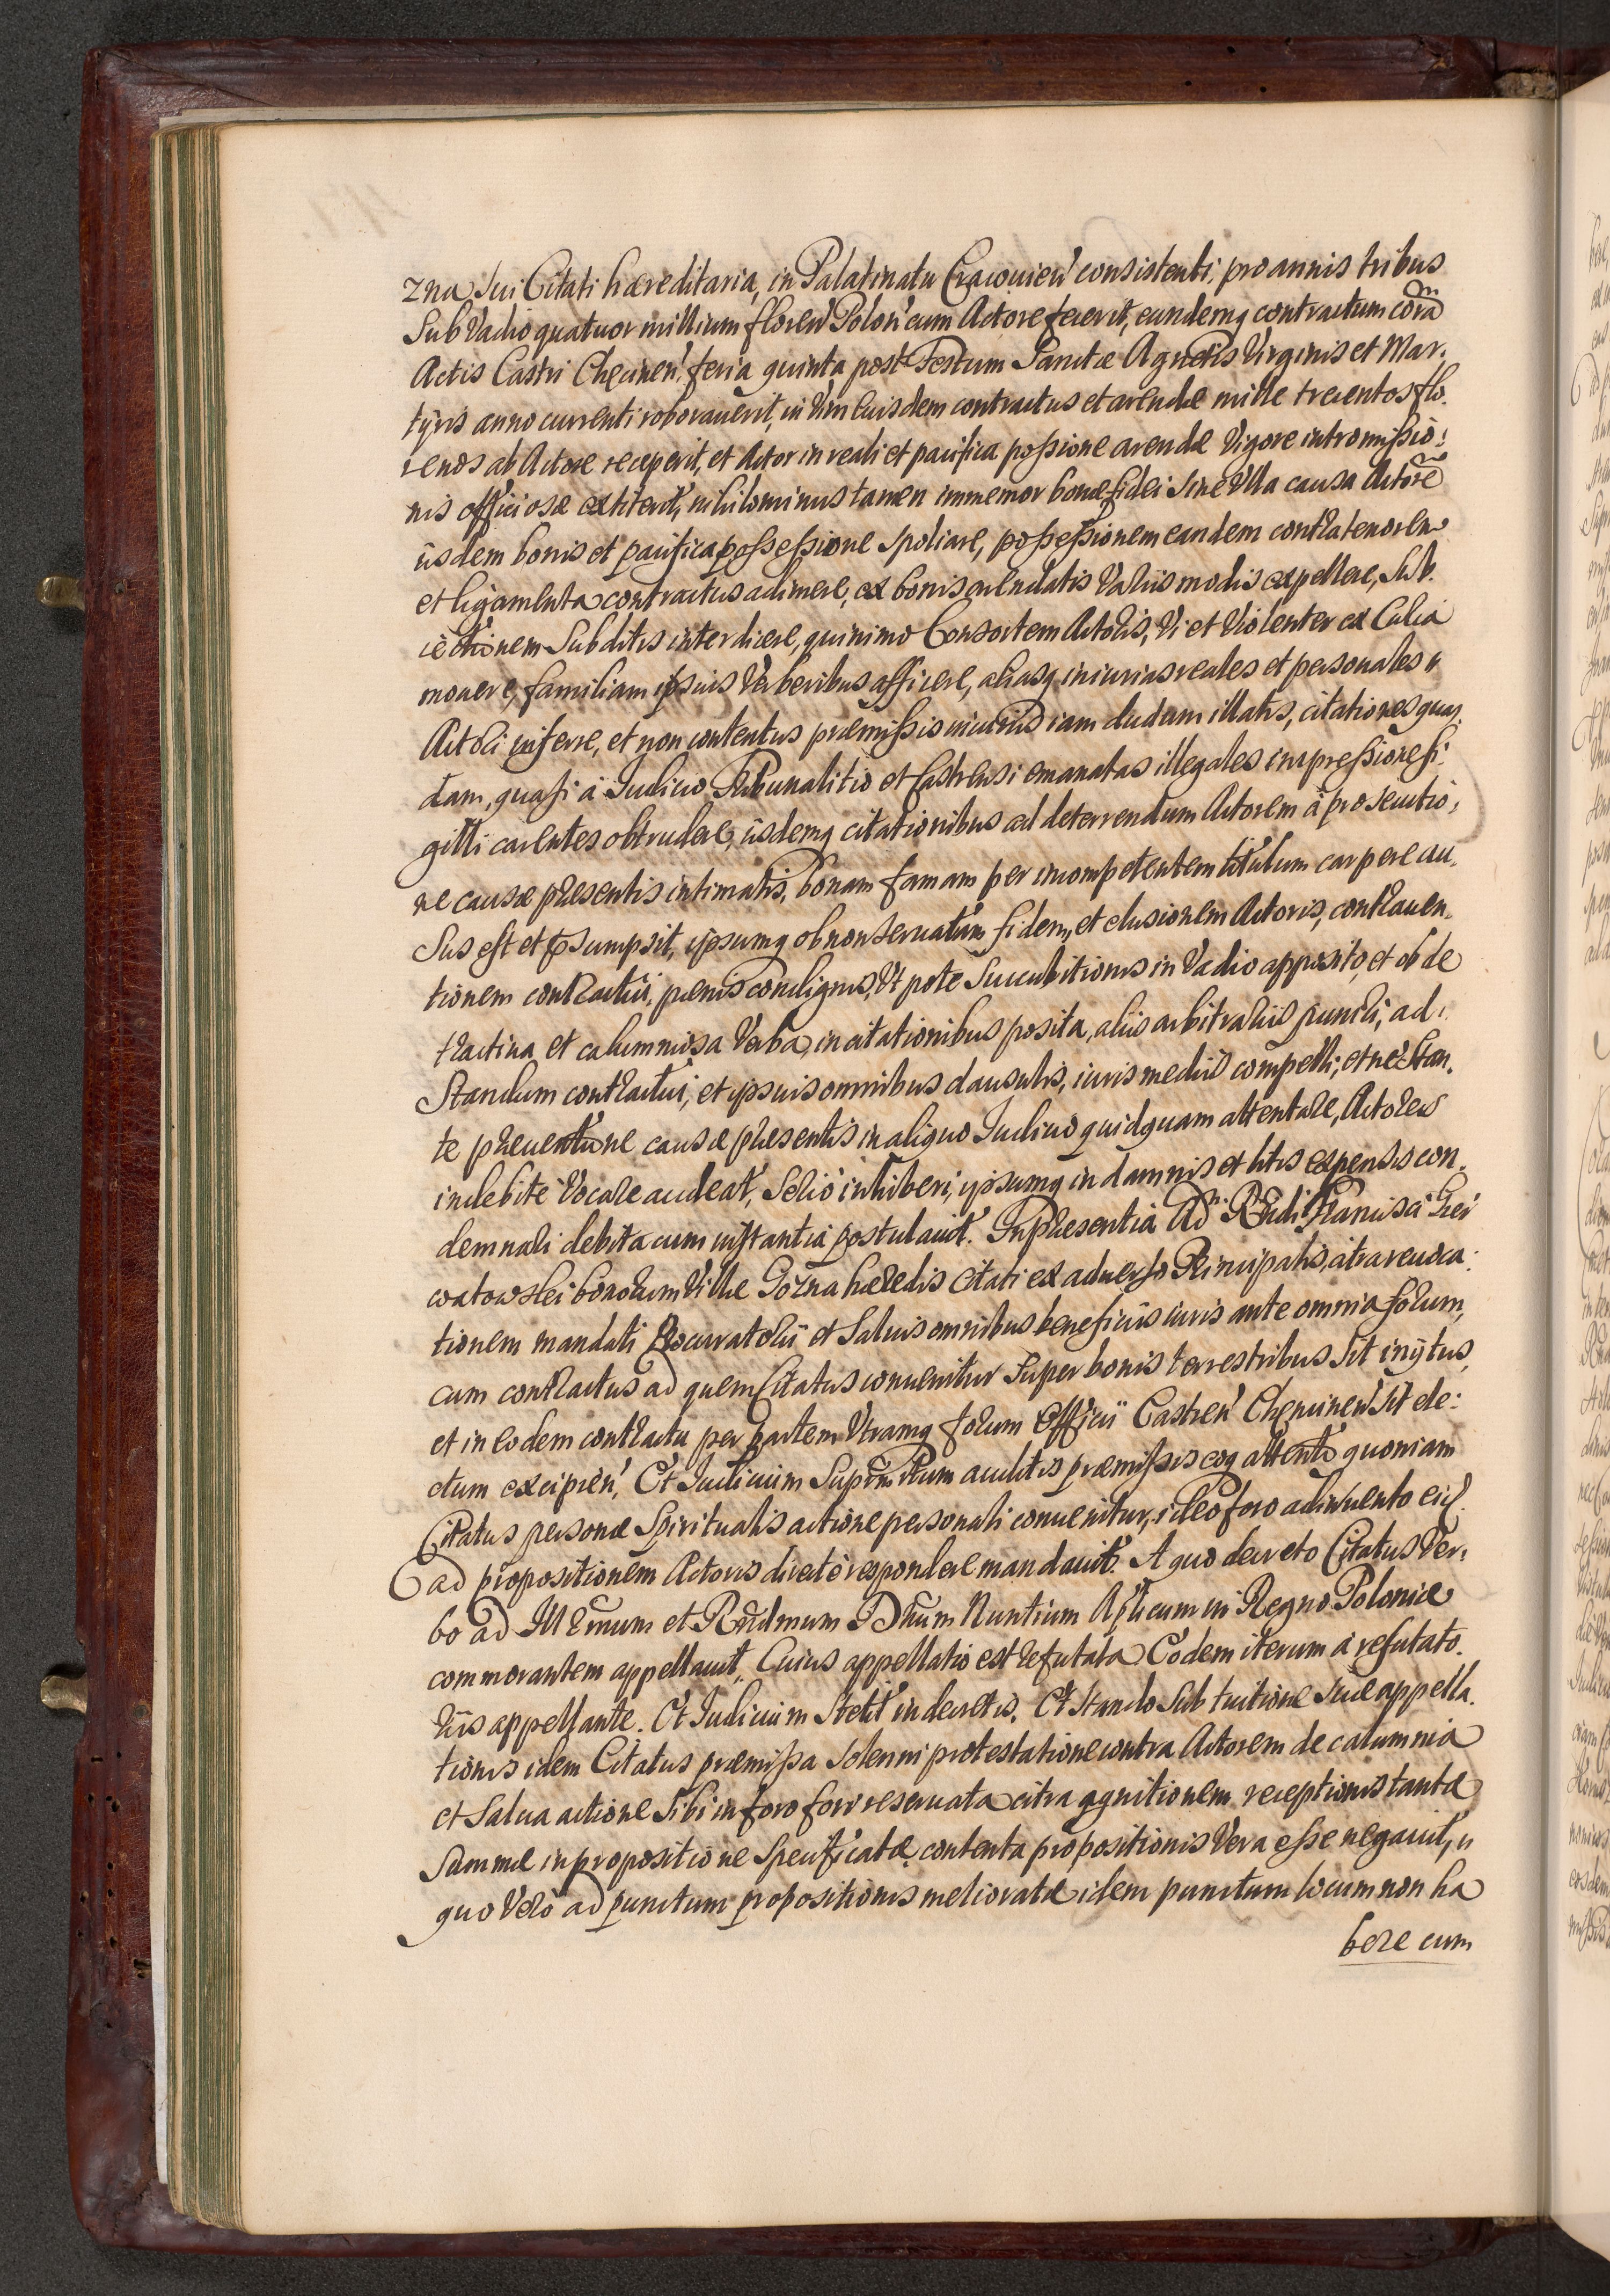 zna sui Citati hæreditaria, in Palatinatu Cracouien' consistenti, pro annis tribus
Sub Vadio quatuor millium floren' Polon' cum Actore fecerit, eundemq contractum corã
Actis Castri Checinen', feria quinta post Festum Sanctæ Agnetis Virginis et Mar,
tÿris anno currenti roborauerit, in Vim eiusdem contractus et arendæ mille trecentos flo,
renos ab Actore receperit, et Actor in reali et pacifica poßione arendæ Vigore intromißio,
nis officiosæ extiterit, nihilominus tamen immemor bonæ fidei Sine Vlla causa Actorẽ
ijsdem bonis et pacifica poßeßione Spoliare, poßeßionem eandem contra tenorem
et ligamenta contractus adimere, ex bonis arendatis Varijs modis expellere, Sub,
iectionem Subditis interdicere, quinimo Consortem Actoris, Vi et Violenter ex Curia
mouere, familiam ipsius Verberibus afficere, aliasq iniurias reales et personales
Actori inferre, et non contentus præmißis iniurijs iam dudum illatis, citationes quas,
dam, quasi à Iudicio Tribunalitio et Castrensi emanatas illegales impreßione si,
gilli carentes obtrudere, ijsdemq citationibus ad deterrendum Actorem à prosecutio,
ne causæ præsentis intimatis, bonam famam per incompetentem titulum carpere au,
Sus est et p̃sumpsit, ipsumq ob non Seruatam fidem, et elusionem Actoris, contrauen,
tionem contractui, pænis condignis, Vt pote Succubitionis in Vadio apposito, et ob de
tractiua et calumniosa Verba, in citationibus posita, alijs arbitrarijs puniri, ad,
Standum contractui, et ipsius omnibus clausulis, iuris medijs compelli, et ne Stan,
te præuentione causæ præsentis in aliquo Iudicio quidquam attentare, Actorem
indebite Vocare audeat, Serio inhiberi, ipsumq in damnis et litis expensis con,
demnari debita cum instantia postulauit. In præsentia Ad. Rñdi Francisci
watowski bonorum Villæ Gozna hæredis Citati ex aduerso Principalis, citra reuoca,
tionem mandati Procuratorij et Saluis omnibus beneficijs iuris ante omnia forum,
cum contractus ad quem Citatus conuenitur Super bonis terrestribus Sit inijtus,
et in eodem contractu per partem Vtramq forum Officij Castren' Chencinen' Sit ele,
ctum excipien', Et Iudicium Suprm̃ Rtum auditis præmißis eoq attento quoniam
Citatus personæ Spiritualis actione personali conuenitur, ideo foro adinuento eid.
ad propositionem Actoris directè respondere mandauit. A quo decreto Citatus Ver,
bo ad Illr̃mum et Rñdmum Dñum Nuntium Aplicum in Regno Poloniæ
commorantem appellauit, Cuius appellatio est refutata Eodem iterum à refutato.
rijs appellante. Et Iudicium Stetit in decretis. Et Stando Sub tuitione Suæ appella,
tionis idem Citatus præmißa Solenni protestatione contra Actorem de calumnia
et Salua actione Sibi in foro fori reseruata citra agnitionem receptionis tantæ
Summæ in propositione Specificatæ, contenta propositionis Vera eße negauit,
quo Verò ad punctum propositionis melioratæ idem punctum locum non ha
bere cum